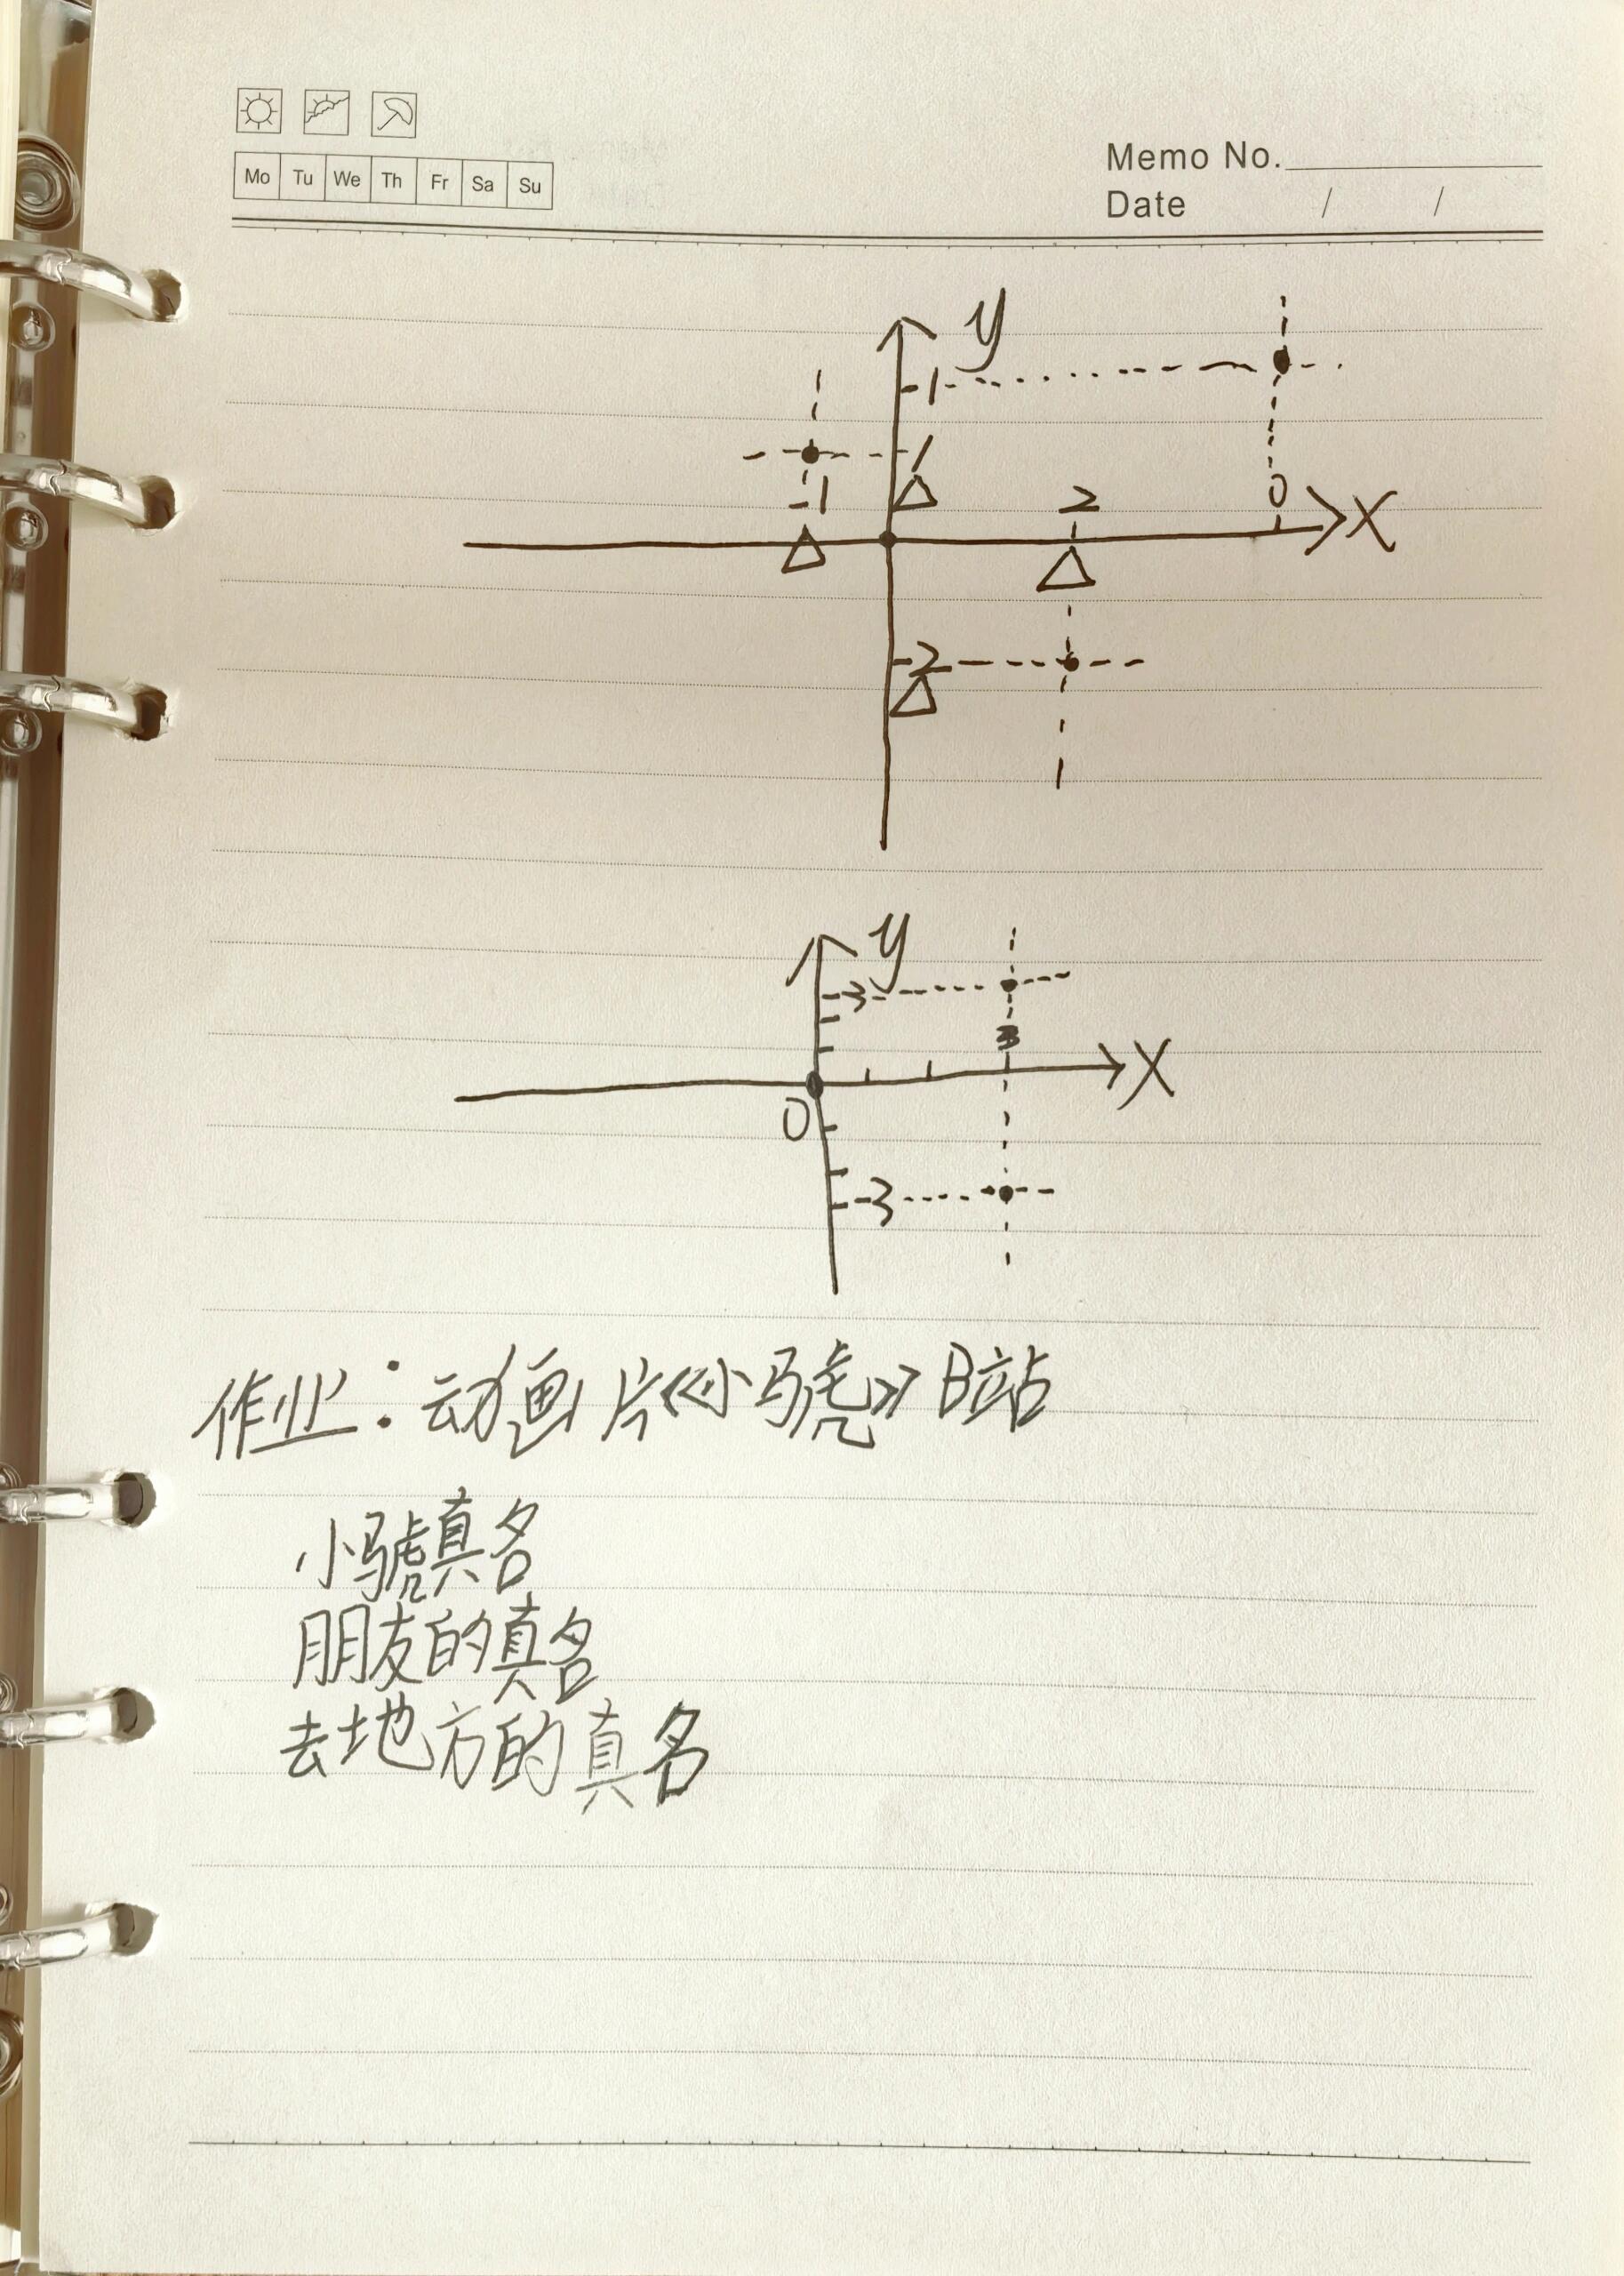 Mo Tu We Th Fr Sa Su
Memo No.
Date / /
y
1
1
-1
2
0
X
-2
y
3
3
X
0
-3
作业：动画片《小號》B站
小號真名
朋友的真名
去地方的真名